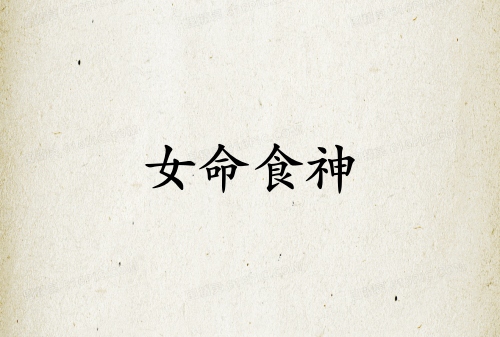 女命食神